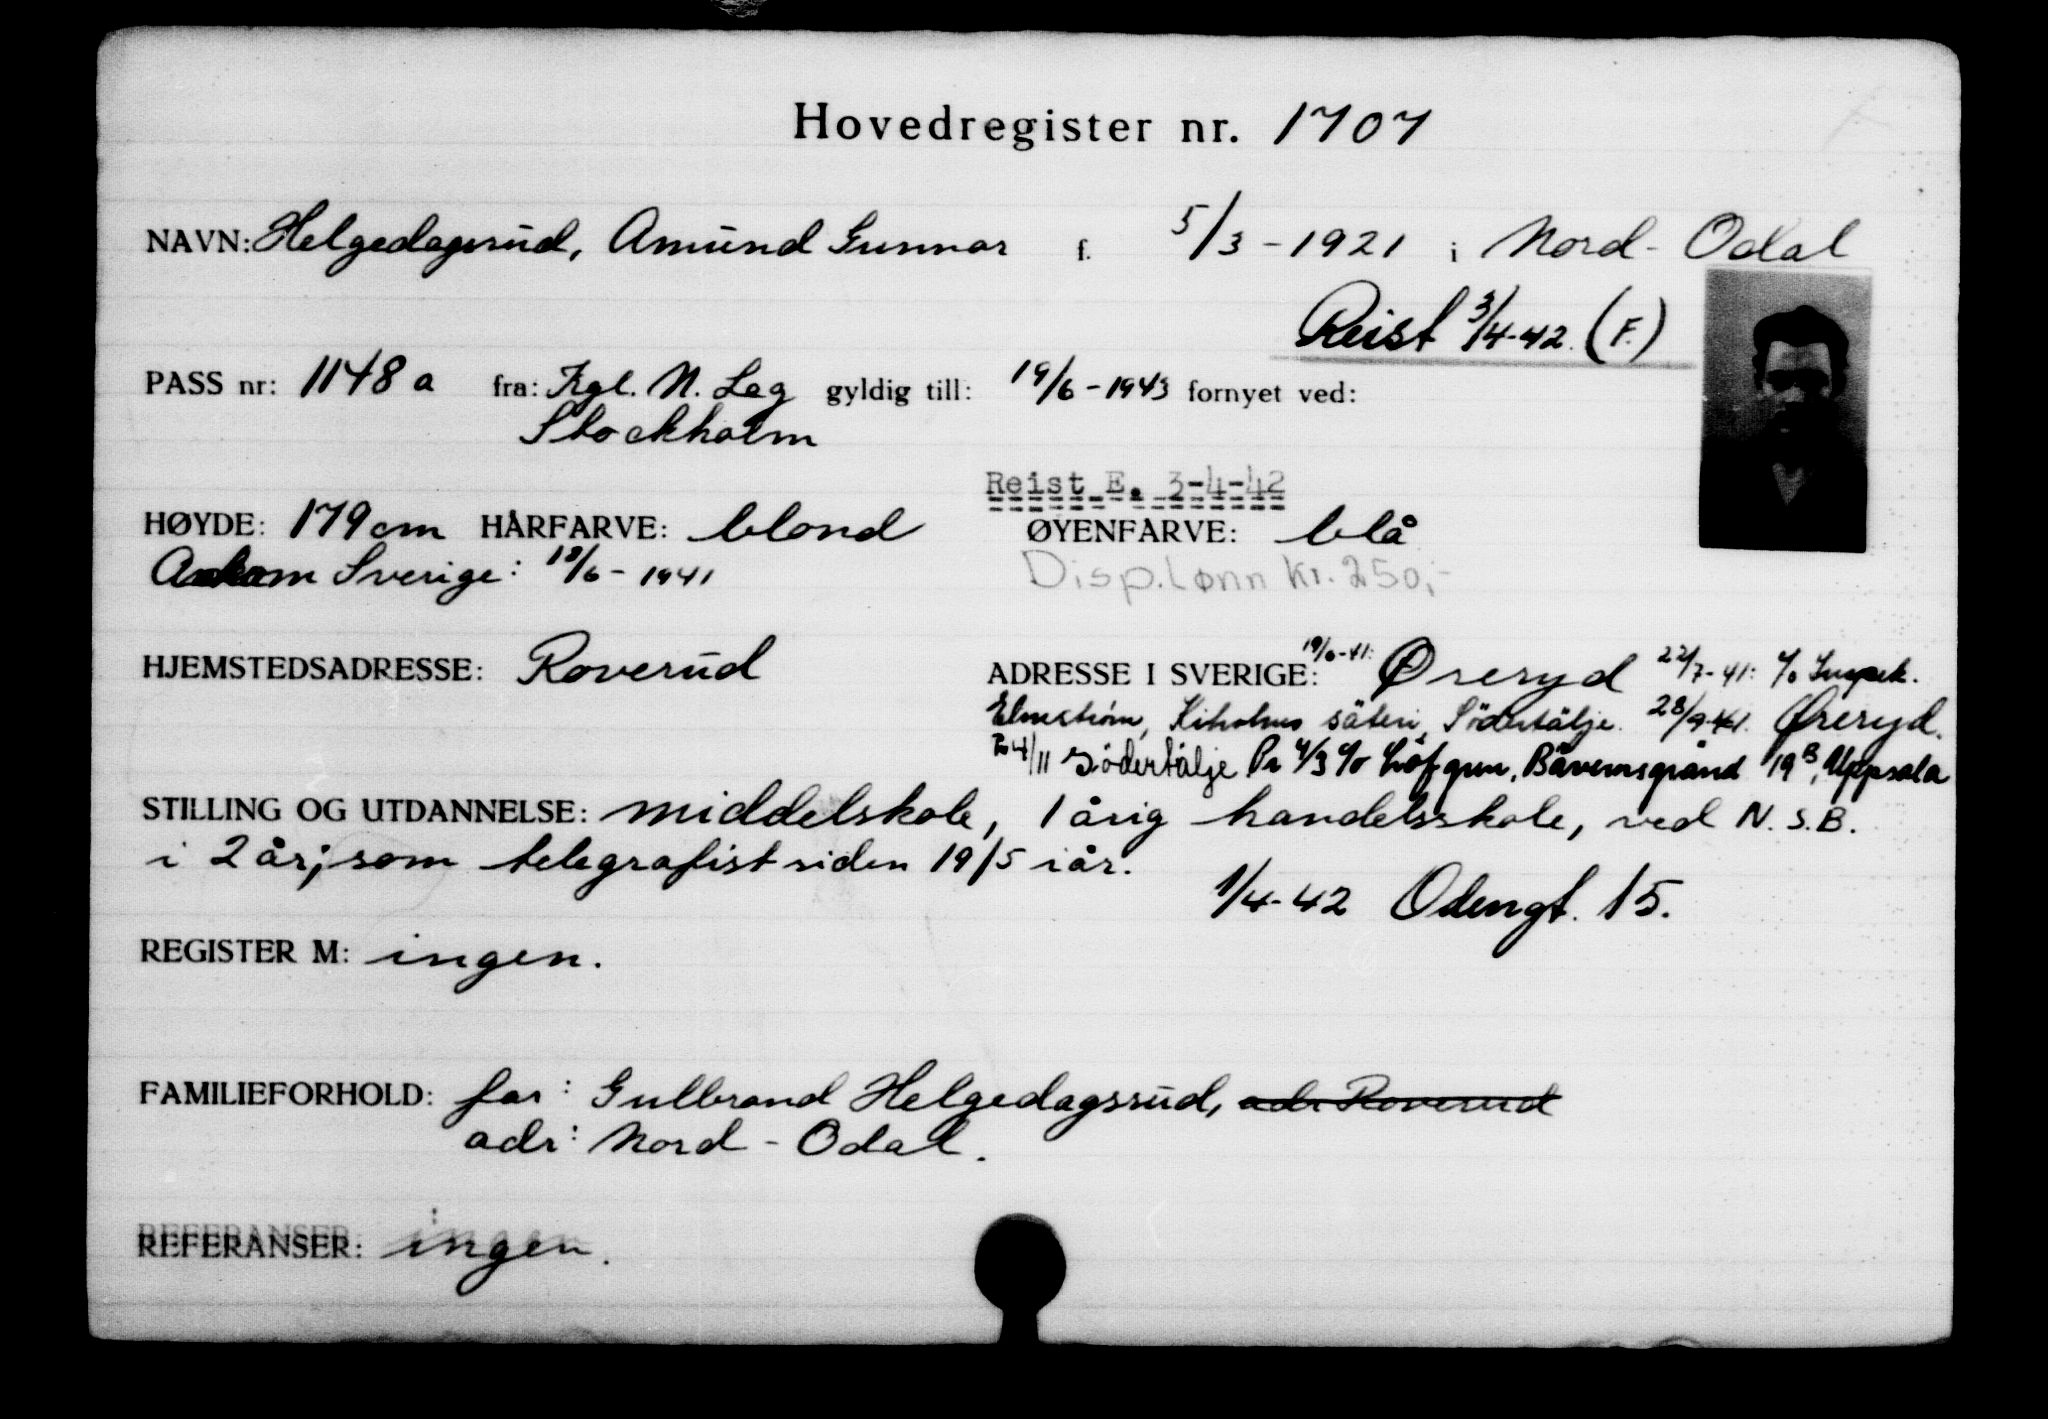 Hovedregister nr. 1707
NAVN: Helgedagsrud, Amund Gunnar f. 5/3-1921 i Nord-Odal
Reist 3/4-42. (F.)
PASS nr: 1148 a fra: Kgl. N. Leg gyldig till: 19/6-1943 fornyet ved:
Stockholm
Reist E. 3-4-42
HØYDE: 179 cm HÅRFARVE: blond ØYENFARVE: blå
Ankom Sverige: 18/6-1941 Disp.lønn kr. 250,-
HJEMSTEDSADRESSE: Roverud ADRESSE I SVERIGE: 19/6-41: Øreryd 22/7-41: c/o Inspek.
Elmström, säteri, Södertälje. 28/9-41. Øreryd.
4/11 Södertälje Pr 4/3 c/o Löfgren, 19 B, Uppsala
STILLING OG UTDANNELSE: middelskole, 1 årig handelsskole, ved N.S.B.
i 2 år; som telegrafist siden 19/5 i år.
1/4-42 Odengt. 15.
REGISTER M: ingen.
FAMILIEFORHOLD: far: Gulbrand Helgedagsrud, adr Roverud
adr: Nord-Odal.
REFERANSER: ingen.